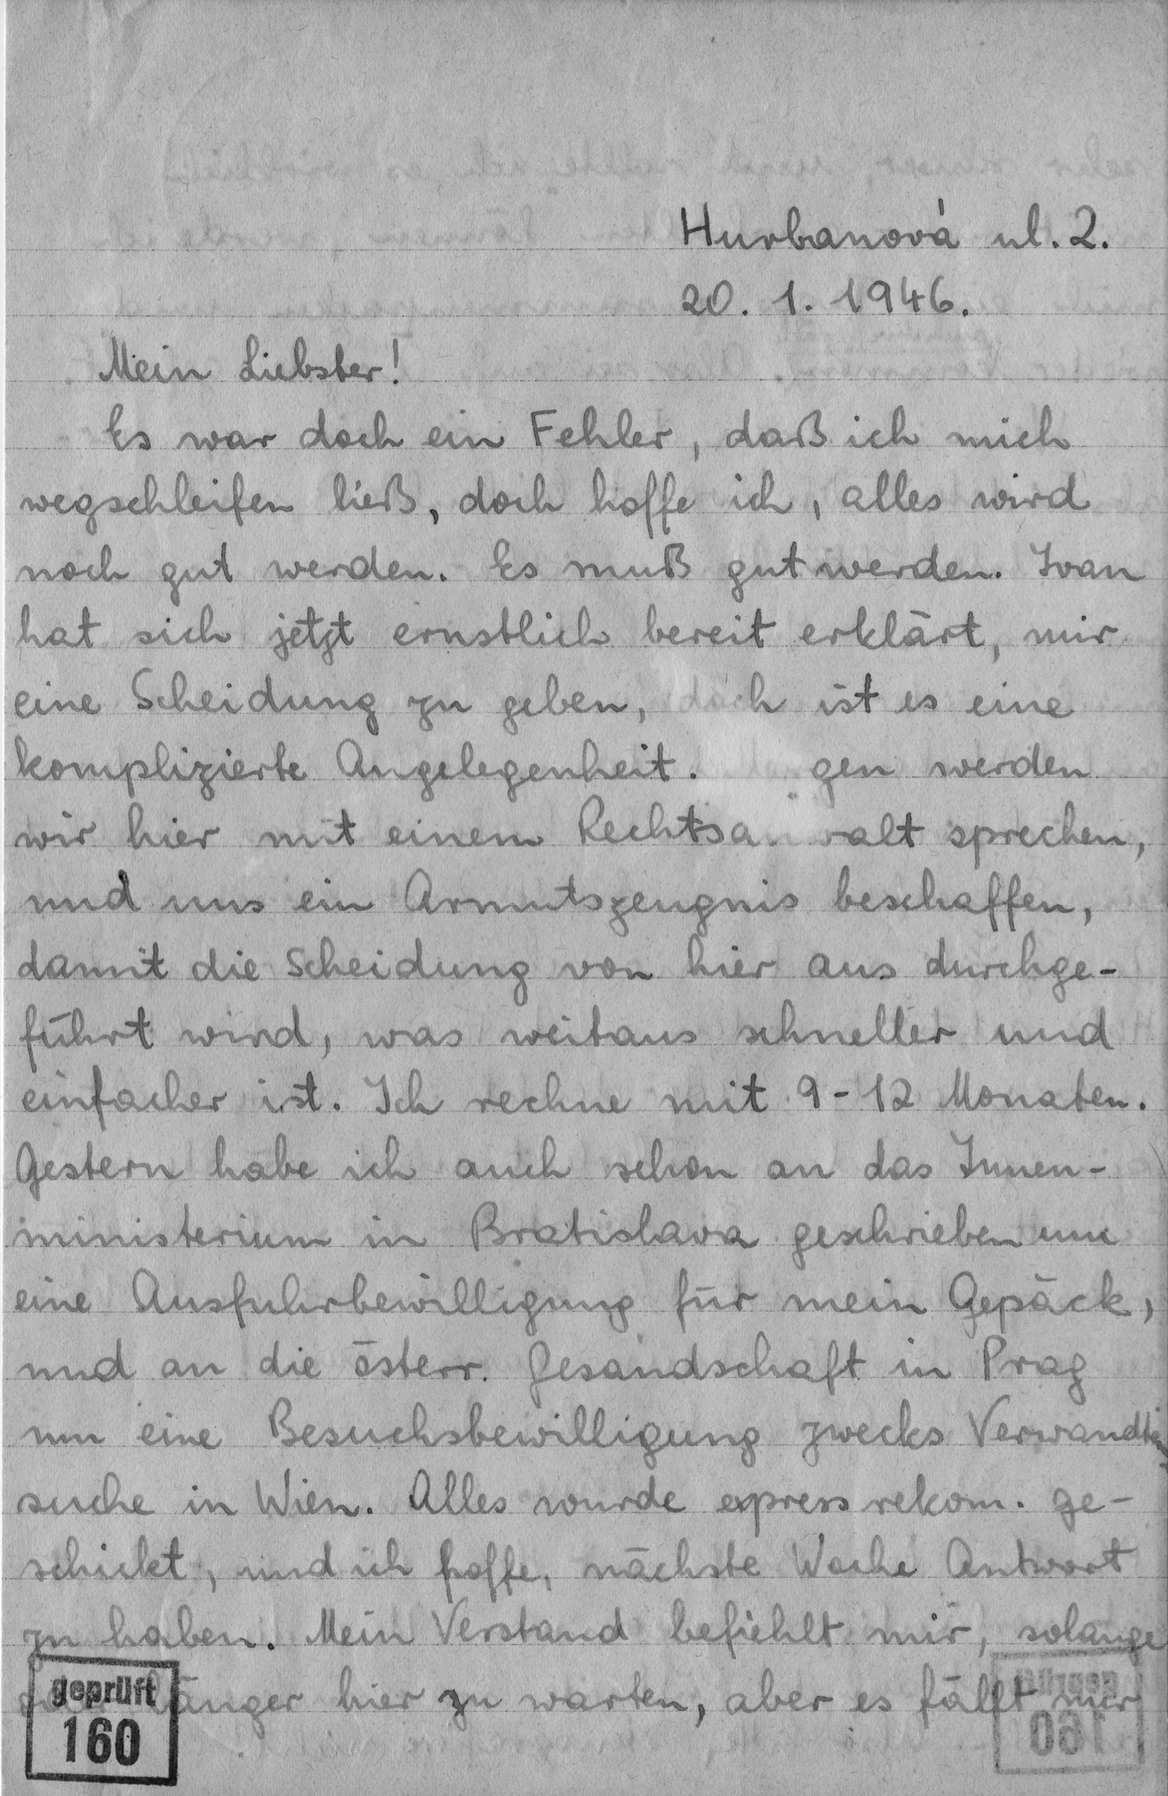 Hurbanová ul. 2.
20. 1. 1946.
Mein Liebster!
Es war doch ein Fehler, daß ich mich
wegschleifen ließ, doch hoffe ich, alles wird
noch gut werden. Es muß gut werden. Ivan
hat sich jetzt ernstlich bereit erklärt, mir
eine Scheidung zu geben, doch ist es eine
komplizierte Angelegenheit. gen werden
wir hier mit einem Rechtsanwalt sprechen,
und uns ein Armutszeugnis beschaffen,
damit die Scheidung von hier aus durchge-
führt wird, was weitaus schneller und
einfacher ist. Ich rechne mit 9-12 Monaten.
Gestern habe ich auch schon an das Innen-
ministerium in Bratislava geschrieben um
eine Ausfuhrbewilligung für mein Gepäck,
und an die österr. Gesandschaft in Prag
um eine Besuchsbewilligung zwecks
suche in Wien. Alles wurde express rekom. ge-
schickt, und ich hoffe, nächste Woche Antwort
zu haben. Mein Verstand befiehlt mir, solange
länger hier zu warten, aber es fällt mir
geprüft
160